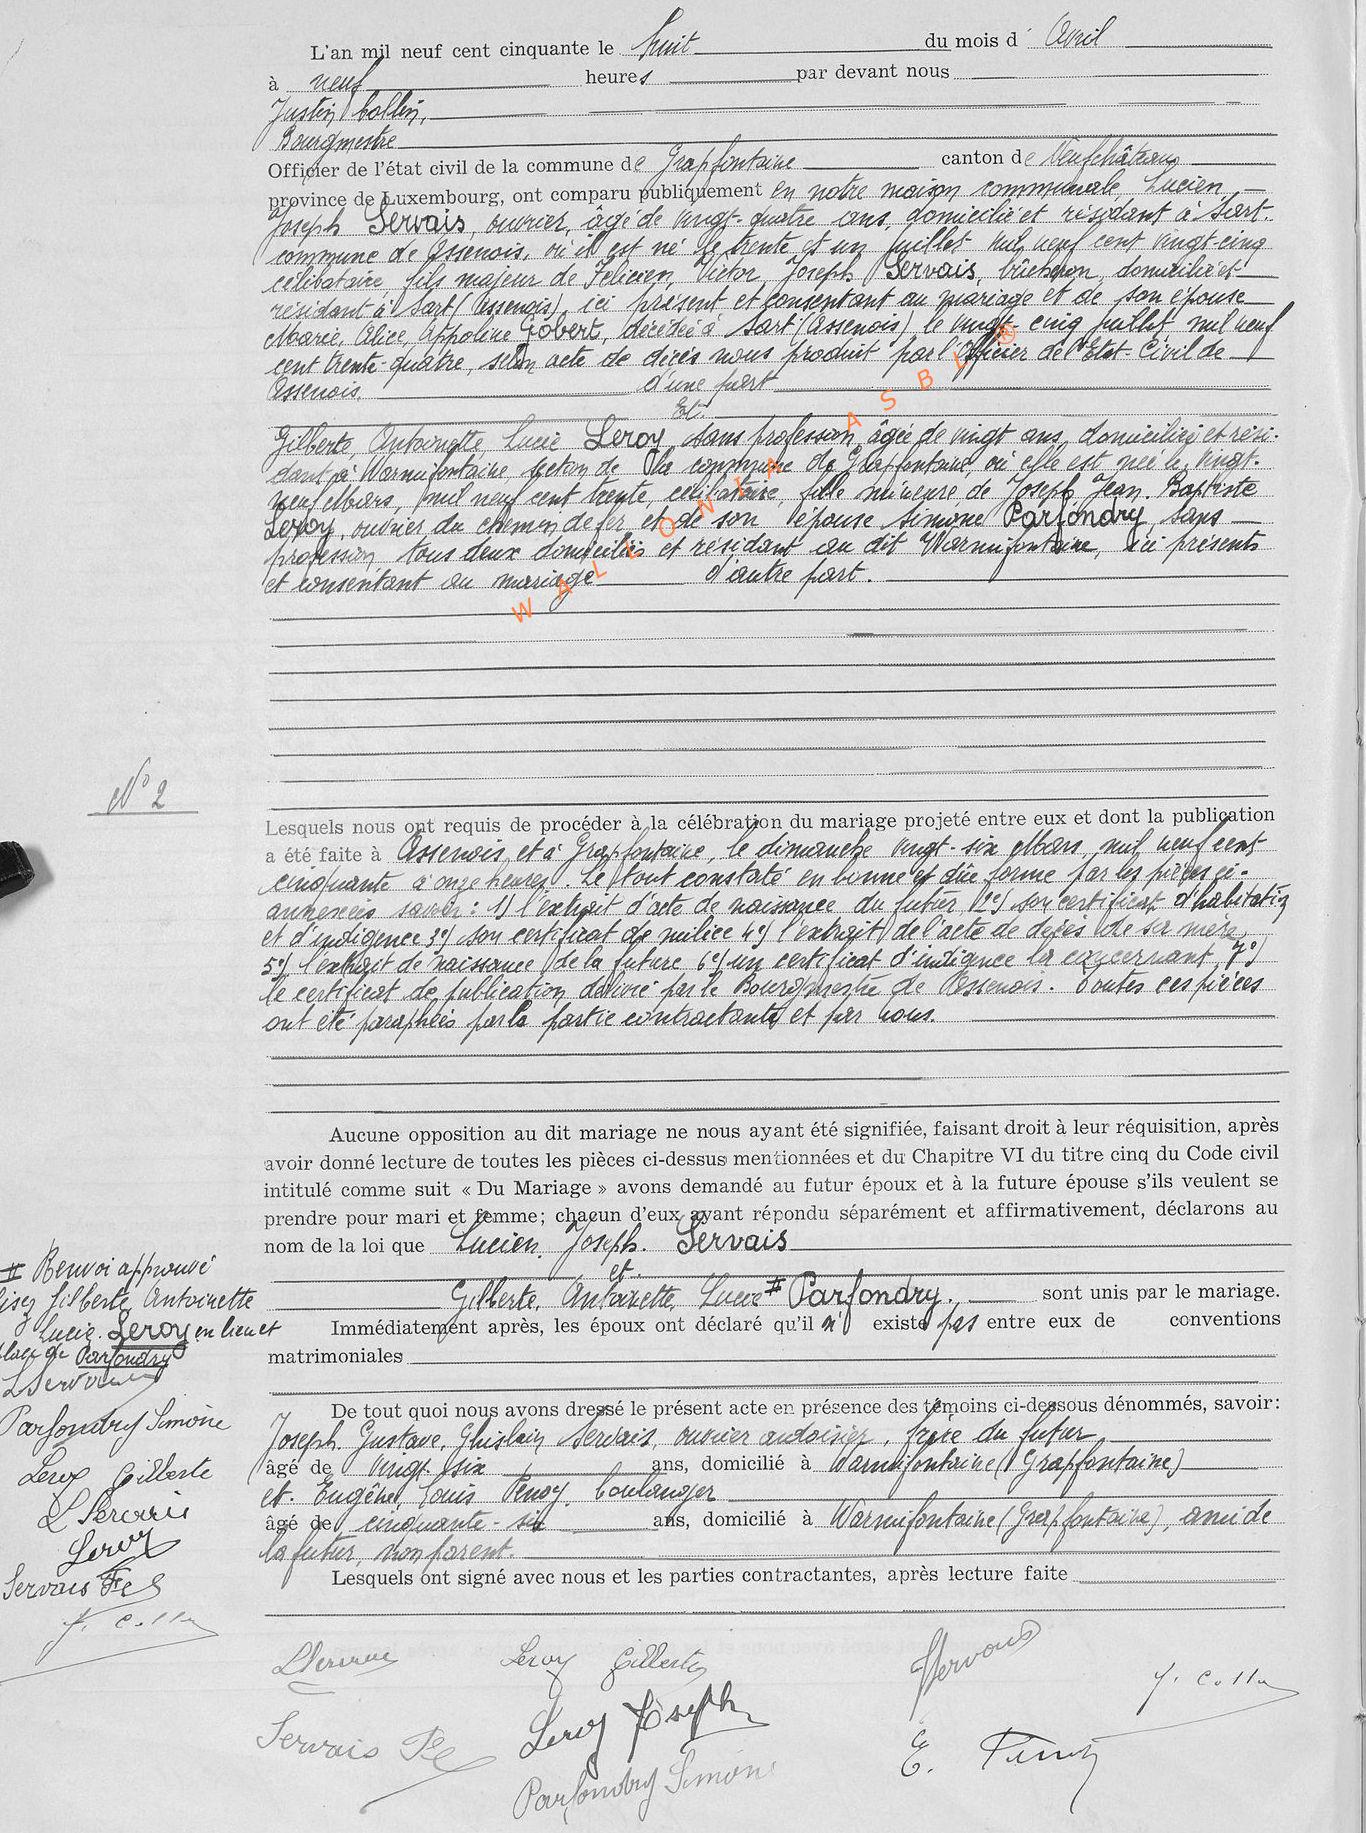 L'an mil neuf cent cinquante le huit du mois d' Avril
à neuf heures par devant nous
Justin Collin,
Bourgmestre
Officier de l'état civil de la commune de Grapfontaine canton de Neufchâteau
province de Luxembourg, ont comparu publiquement en notre maison communale, Lucien,
Joseph Servais, ouvrier, âgé de vingt-quatre ans, domicilié et résidant à Sart-
commune de Assenois, où il est né le trente et un juillet mil neuf cent vingt-cinq
célibataire fils majeur de Felicien, Victor Joseph Servais, bûcheron, domicilié et
résidant à Sart (Assenois) ici présent et consentant au mariage et de son épouse
Marie, Alice, Appoline Gobert, décédée à Sart (Assenois) le vingt cinq juillet mil neuf
cent trente-quatre, selon acte de décès nous produit par l'Officier de l'Etat-Civil de
Assenois. d'une part
Et.
Gilberte, Antoinette, Lucie Leroy, sans profession, âgée de vingt ans, domiciliée et rési-
dant à Warmifontaine, section de la commune de Grapfontaine où elle est née le vingt-
neuf Mars, mil neuf cent trente, célibataire, fille mineure de Joseph, Jean-Baptiste
Leroy, ouvrier du chemin de fer, et de son épouse Simone Parfondry, sans
profession, tous deux domiciliés et résidant au dit Warmifontaine, ici présents
et consentant au mariage d'autre part.
WALLONIA ASBL ®
N° 2
Lesquels nous ont requis de procéder à la célébration du mariage projeté entre eux et dont la publication
a été faite à Assenois et à Grapfontaine, le dimanche vingt-six Mars, mil neuf cent
cinquante à onze heures. Le tout constaté en bonne et dûe forme par les pièces ci-
annexées savoir: 1) l'extrait d'acte de naissance du futur, 2e) son certificat d'habitation
et d'indigence 3e) son certificat de milice 4e) l'extrait de l'acte de décès de sa mère,
5e) l'extrait de naissance de la future 6e) un certificat d'indigence la concernant 7e)
le certificat de publication délivré par le Bourgmestre de Assenois. Toutes ces pièces
ont été paraphées par la partie contractante et par nous.
Aucune opposition au dit mariage ne nous ayant été signifiée, faisant droit à leur réquisition, après
avoir donné lecture de toutes les pièces ci-dessus mentionnées et du Chapitre VI du titre cinq du Code civil
intitulé comme suit « Du Mariage » avons demandé au futur époux et à la future épouse s'ils veulent se
prendre pour mari et femme; chacun d'eux ayant répondu séparément et affirmativement, déclarons au
nom de la loi que Lucien, Joseph. Servais
et.
Gilberte, Antoinette, Lucie # Parfondry. sont unis par le mariage.
Immédiatement après, les époux ont déclaré qu'il n' existe pas entre eux de conventions
matrimoniales
# Renvoi approuvé
lisez Gilberte Antoinette
Lucie. Leroy en lieu et
place de Parfondry
LServais
Parfondry Simone
Leroy Gilberte
L Servais
Leroy
Servais
J. Collin
De tout quoi nous avons dressé le présent acte en présence des témoins ci-dessous dénommés, savoir:
Joseph. Gustave, Ghislain Servais, ouvrier ardoisier, frère du futur
âgé de vingt six ans, domicilié à Warmifontaine (Grapfontaine)
et. Eugène, Louis boulanger
âgé de cinquante-six ans, domicilié à Warmifontaine (Grapfontaine), ami de
la futur, non parent.
Lesquels ont signé avec nous et les parties contractantes, après lecture faite
LServais Leroy Gilberte JServais J. Collin
Servais Leroy Joseph E.
Parfondry Simone